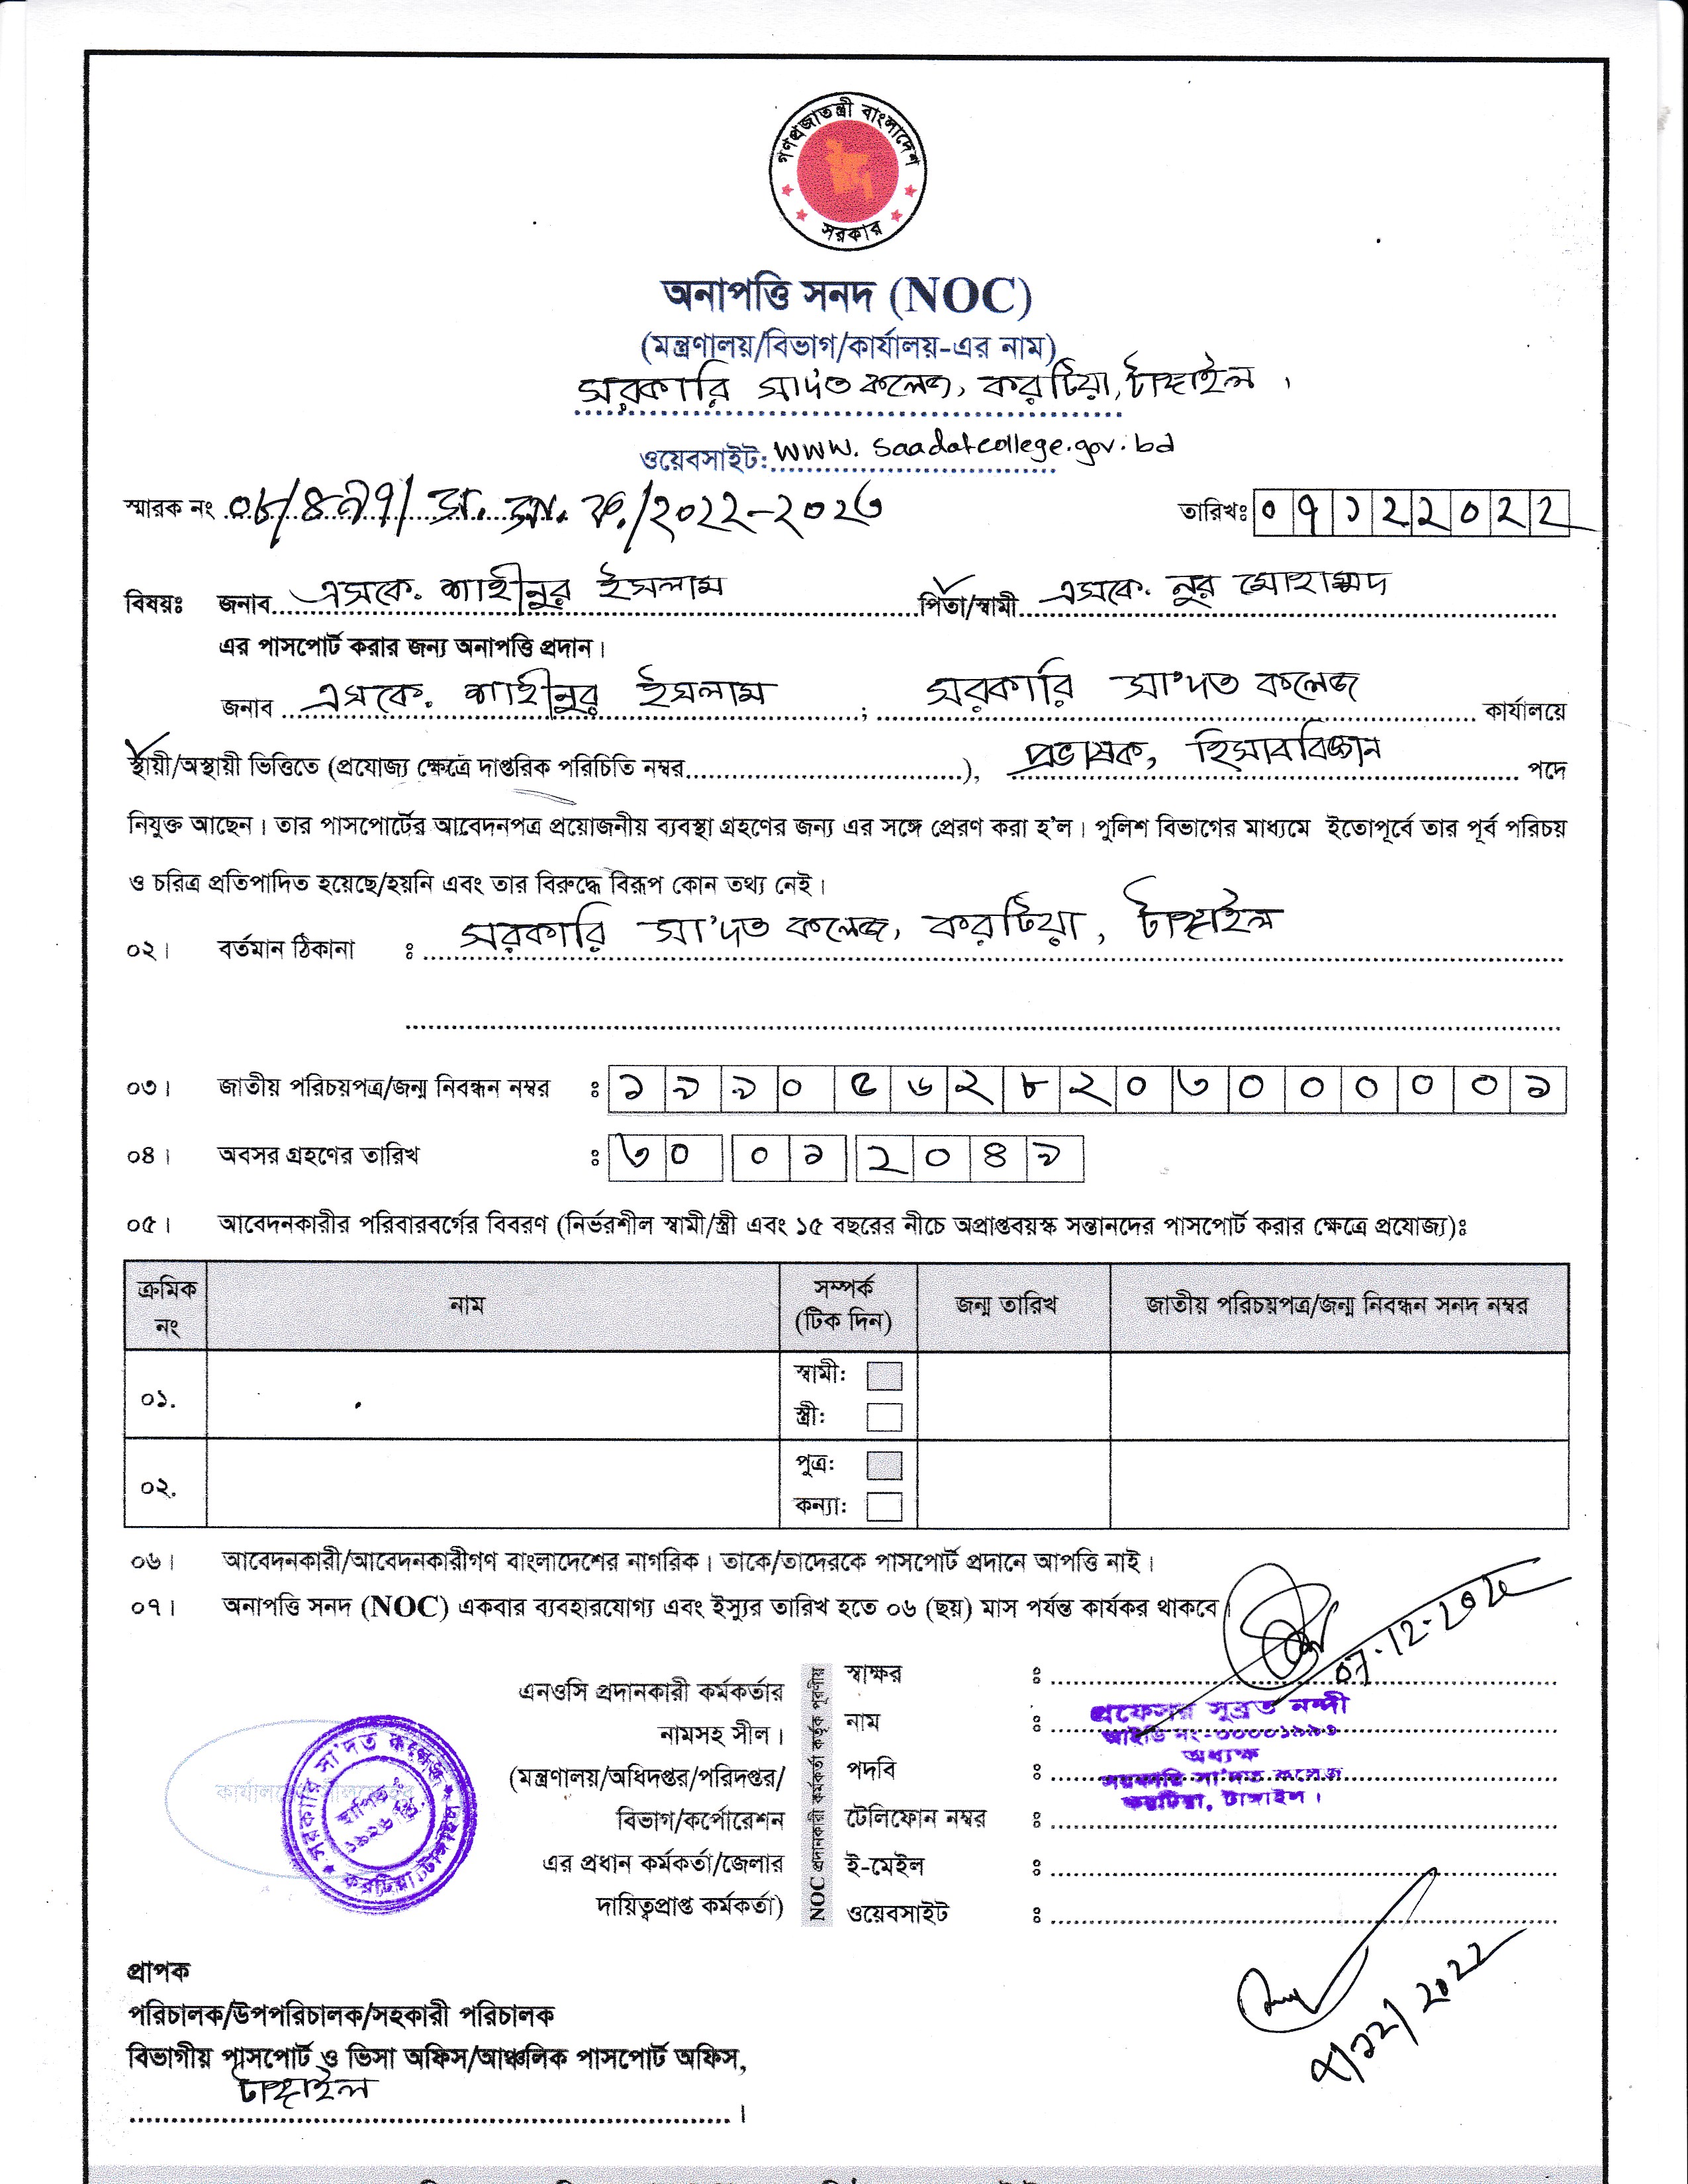 গণপ্রজাতন্ত্রী বাংলাদেশ
সরকার
অনাপত্তি সনদ (NOC)
(মন্ত্রণালয়/বিভাগ/কার্যালয়-এর নাম)
সরকারি সা'দত কলেজ, করটিয়া, টাঙ্গাইল ।
ওয়েবসাইট: www.saadatcollege.gov.bd
স্মারক নং ০৮/৪৯৭/ /২০২২-২০২৩ তারিখঃ ০৭১২২০২২
বিষয়ঃ জনাব এসকে. শাহীনুর ইসলাম পিতা/স্বামী এসকে. নুর মোহাম্মদ
এর পাসপোর্ট করার জন্য অনাপত্তি প্রদান।
জনাব এসকে. শাহীনুর ইসলাম ; সরকারি সা'দত কলেজ কার্যালয়ে
স্থায়ী/অস্থায়ী ভিত্তিতে (প্রযোজ্য ক্ষেত্রে দাপ্তরিক পরিচিতি নম্বর..............................), প্রভাষক, হিসাববিজ্ঞান পদে
নিযুক্ত আছেন। তার পাসপোর্টের আবেদনপত্র প্রয়োজনীয় ব্যবস্থা গ্রহণের জন্য এর সঙ্গে প্রেরণ করা হ'ল। পুলিশ বিভাগের মাধ্যমে ইতোপূর্বে তার পূর্ব পরিচয়
ও চরিত্র প্রতিপাদিত হয়েছে/হয়নি এবং তার বিরুদ্ধে বিরূপ কোন তথ্য নেই।
০২। বর্তমান ঠিকানা ঃ সরকারি সা'দত কলেজ, করটিয়া, টাঙ্গাইল
০৩। জাতীয় পরিচয়পত্র/জন্ম নিবন্ধন নম্বর ঃ ১৯৯০৫৬২৮২০৩০০০০০১
০৪। অবসর গ্রহণের তারিখ ঃ ৩০ ০১ ২০৪৯
০৫। আবেদনকারীর পরিবারবর্গের বিবরণ (নির্ভরশীল স্বামী/স্ত্রী এবং ১৫ বছরের নীচে অপ্রাপ্তবয়স্ক সন্তানদের পাসপোর্ট করার ক্ষেত্রে প্রযোজ্য)ঃ
ক্রমিক নং নাম সম্পর্ক (টিক দিন) জন্ম তারিখ জাতীয় পরিচয়পত্র/জন্ম নিবন্ধন সনদ নম্বর
০১. স্বামী:
স্ত্রী:
০২. পুত্র:
কন্যা:
০৬। আবেদনকারী/আবেদনকারীগণ বাংলাদেশের নাগরিক। তাকে/তাদেরকে পাসপোর্ট প্রদানে আপত্তি নাই।
০৭। অনাপত্তি সনদ (NOC) একবার ব্যবহারযোগ্য এবং ইস্যুর তারিখ হতে ০৬ (ছয়) মাস পর্যন্ত কার্যকর থাকবে।
07-12-2022
এনওসি প্রদানকারী কর্মকর্তার
নামসহ সীল।
(মন্ত্রণালয়/অধিদপ্তর/পরিদপ্তর/
বিভাগ/কর্পোরেশন
এর প্রধান কর্মকর্তা/জেলার
দায়িত্বপ্রাপ্ত কর্মকর্তা)
NOC প্রদানকারী কর্মকর্তা কর্তৃক পূরণীয়
স্বাক্ষর ঃ
নাম ঃ প্রফেসর সুব্রত নন্দী
আইডি নং-০০০০১৯৯৩
পদবি ঃ অধ্যক্ষ
সরকারি সা'দত কলেজ
করটিয়া, টাঙ্গাইল।
টেলিফোন নম্বর ঃ
ই-মেইল ঃ
ওয়েবসাইট ঃ
সরকারি সা'দত কলেজ
স্থাপিত ঃ
১৯২৬ খ্রি.
করটিয়া, টাঙ্গাইল
/১২/২০২২
প্রাপক
পরিচালক/উপপরিচালক/সহকারী পরিচালক
বিভাগীয় পাসপোর্ট ও ভিসা অফিস/আঞ্চলিক পাসপোর্ট অফিস,
টাঙ্গাইল ।